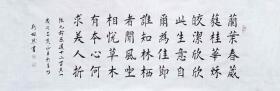 蘭葉春葳
蕤桂華秋
皎潔欣欣
此生意自
爾為佳節
誰知林栖
者聞風坐
相悦草木
有本心何
求美人折
張九齡感遇十二首其一
書